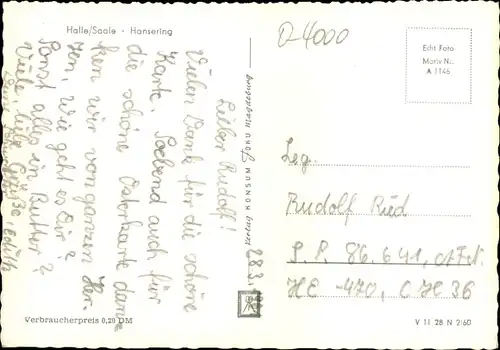 Halle/Saale · Hansering
0-4000
Echt Foto
Motiv Nr.
A 1146
Lieber Rudolf!
Vielen Dank für die schöne
Karte. Soebend auch für
die schöne Osterkarte danken
wir von ganzen Her-
zen, wie geht es Dir?
Sonst alles in Butter?
Viele liebe Grüße Edith
28.3.
Verlag KONSUM FOKU Magdeburg
Leg.
Rudolf Ried
S. P. 86.641, At.Fr.
HE -470, C HC 36
Verbraucherpreis 0,20 DM
V 11 28 N 2/60